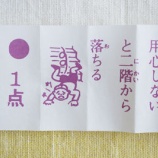 用心しない
と二階から
落ちる
●
1点